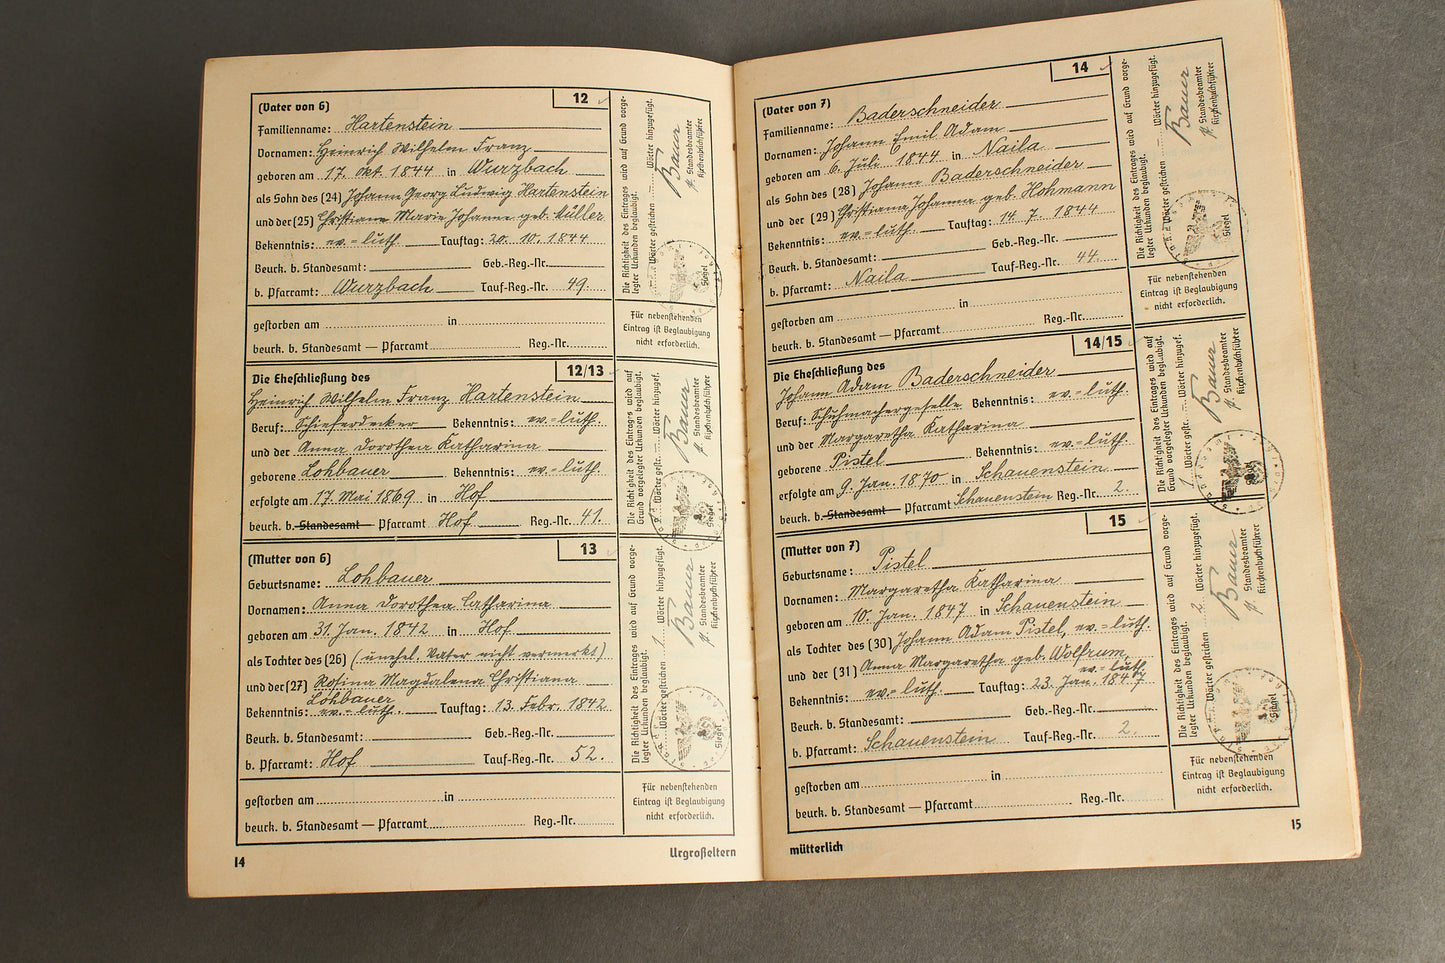 (Vater von 6) 12
Familienname: Hartenstein
Vornamen: Heinrich Wilhelm Franz
geboren am 17. Okt. 1844 in Wurzbach
als Sohn des (24) Johann Georg Ludwig Hartenstein
und der (25) Christiane Marie Johanne geb. Müller
Bekenntnis: ev.=luth. Tauftag: 20. 10. 1844
Beurk. b. Standesamt: Geb.-Reg.-Nr.
b. Pfarramt: Wurzbach Tauf-Reg.-Nr. 49.
gestorben am in
beurk. b. Standesamt — Pfarramt Reg.-Nr.
Die Richtigkeit des Eintrages wird auf Grund vorge-
legter Urkunden beglaubigt.
Wörter gestrichen Wörter hinzugefügt.
Bauer
Standesbeamter
Kirchenbuchführer
Siegel
Für nebenstehenden
Eintrag ist Beglaubigung
nicht erforderlich.
Die Eheschließung des 12/13
Heinrich Wilhelm Franz Hartenstein
Beruf: Schieferdecker Bekenntnis: ev.=luth.
und der Anna Dorothea Katharina
geborene Lohbauer Bekenntnis: ev.=luth.
erfolgte am 17. Mai 1869 in Hof
beurk. b. Standesamt — Pfarramt Hof Reg.-Nr. 41.
Die Richtigkeit des Eintrages wird auf
Grund vorgelegter Urkunden beglaubigt.
Wörter gestr. Wörter hinzugef.
Bauer
Standesbeamter
Kirchenbuchführer
Siegel
(Mutter von 6) 13
Geburtsname: Lohbauer
Vornamen: Anna Dorothea Catharina
geboren am 31. Jan. 1842 in Hof
als Tochter des (26) (unehel. Vater nicht vermerkt)
und der (27) Rosina Magdalena Christiana
Lohbauer
Bekenntnis: ev.=luth. Tauftag: 13. Febr. 1842
Beurk. b. Standesamt: Geb.-Reg.-Nr.
b. Pfarramt: Hof Tauf-Reg.-Nr. 52.
gestorben am in
beurk. b. Standesamt — Pfarramt Reg.-Nr.
Die Richtigkeit des Eintrages wird auf Grund vorge-
legter Urkunden beglaubigt.
Wörter gestrichen 1 Wörter hinzugefügt.
Bauer
Standesbeamter
Kirchenbuchführer
Siegel
Für nebenstehenden
Eintrag ist Beglaubigung
nicht erforderlich.
14 Urgroßeltern
(Vater von 7) 14
Familienname: Baderschneider
Vornamen: Johann Emil Adam
geboren am 6. Juli 1844 in Naila
als Sohn des (28) Johann Baderschneider
und der (29) Christiana Johanna geb. Hohmann
Bekenntnis: ev.=luth. Tauftag: 14. 7. 1844
Beurk. b. Standesamt: Geb.-Reg.-Nr.
b. Pfarramt: Naila Tauf-Reg.-Nr. 44.
gestorben am in
beurk. b. Standesamt — Pfarramt Reg.-Nr.
Die Richtigkeit des Eintrages wird auf Grund vorge-
legter Urkunden beglaubigt.
Wörter gestrichen Wörter hinzugefügt.
Bauer
Standesbeamter
Kirchenbuchführer
Siegel
Für nebenstehenden
Eintrag ist Beglaubigung
nicht erforderlich.
Die Eheschließung des 14/15
Johann Adam Baderschneider
Beruf: Schuhmachergeselle Bekenntnis: ev.=luth.
und der Margaretha Katharina
geborene Pistel Bekenntnis: ev.=luth.
erfolgte am 9. Jan. 1870 in Schauenstein
beurk. b. Standesamt — Pfarramt Schauenstein Reg.-Nr. 2
Die Richtigkeit des Eintrages wird auf
Grund vorgelegter Urkunden beglaubigt.
1 Wörter gestr. Wörter hinzugef.
Bauer
Standesbeamter
Kirchenbuchführer
(Mutter von 7) 15
Geburtsname: Pistel
Vornamen: Margaretha Katharina
geboren am 10. Jan. 1847 in Schauenstein
als Tochter des (30) Johann Adam Pistel, ev.=luth.
und der (31) Anna Margaretha geb. Wolfrum,
ev.=luth.
Bekenntnis: ev.=luth. Tauftag: 23. Jan. 1847
Beurk. b. Standesamt: Geb.-Reg.-Nr.
b. Pfarramt: Schauenstein Tauf-Reg.-Nr. 2.
gestorben am in
beurk. b. Standesamt — Pfarramt Reg.-Nr.
Die Richtigkeit des Eintrages wird auf Grund vorge-
legter Urkunden beglaubigt.
Wörter gestrichen 2 Wörter hinzugefügt.
Bauer
Standesbeamter
Kirchenbuchführer
Siegel
Für nebenstehenden
Eintrag ist Beglaubigung
nicht erforderlich.
mütterlich 15